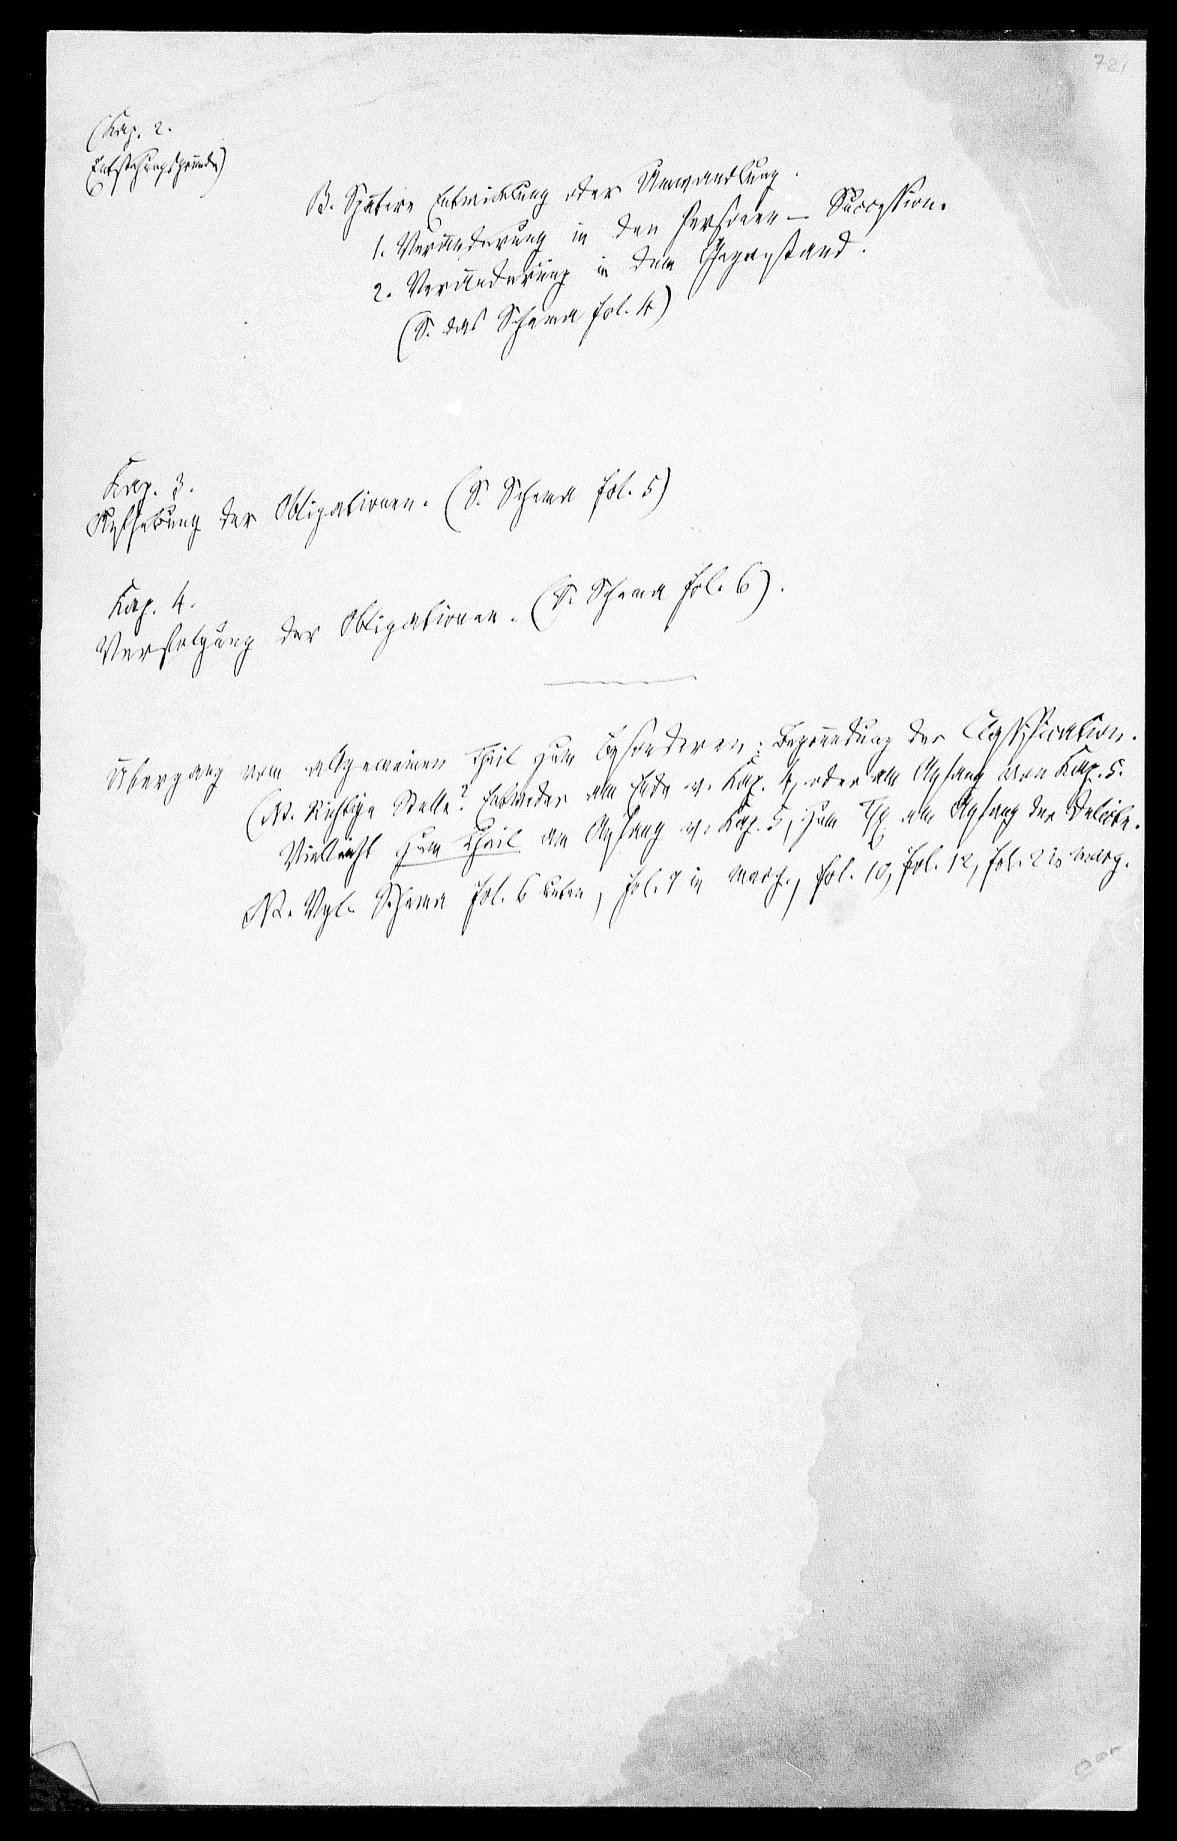 721
(Kap. 2.
Entstehungsgründe)
B. Spätere Entwicklung oder Umwandlung.
1. Veränderung in den Personen – Succession.
2. Veränderung in dem Gegenstand.
(S. das Schema fol. 4)
Kap. 3.
Aufhebung der Obligationen. (S. Schema fol. 5)
Kap. 4.
Verfolgung der Obligationen. (S. Schema fol. 6).
Übergang vom allgemeinen Theil zum besonderen: Begründung der Classification.
(NB. Richtige Stelle? Entweder am Ende v. Kap. 4, oder am Anfang von Kap. 5.
Vielleicht zum Theil am Anfang v. Kap. 5, zum Th. am Anfang der Delicte.
NB. Vgl. Schema fol. 6 unten, fol. 7 in marg., fol. 10, fol. 12, fol. 2 in marg.